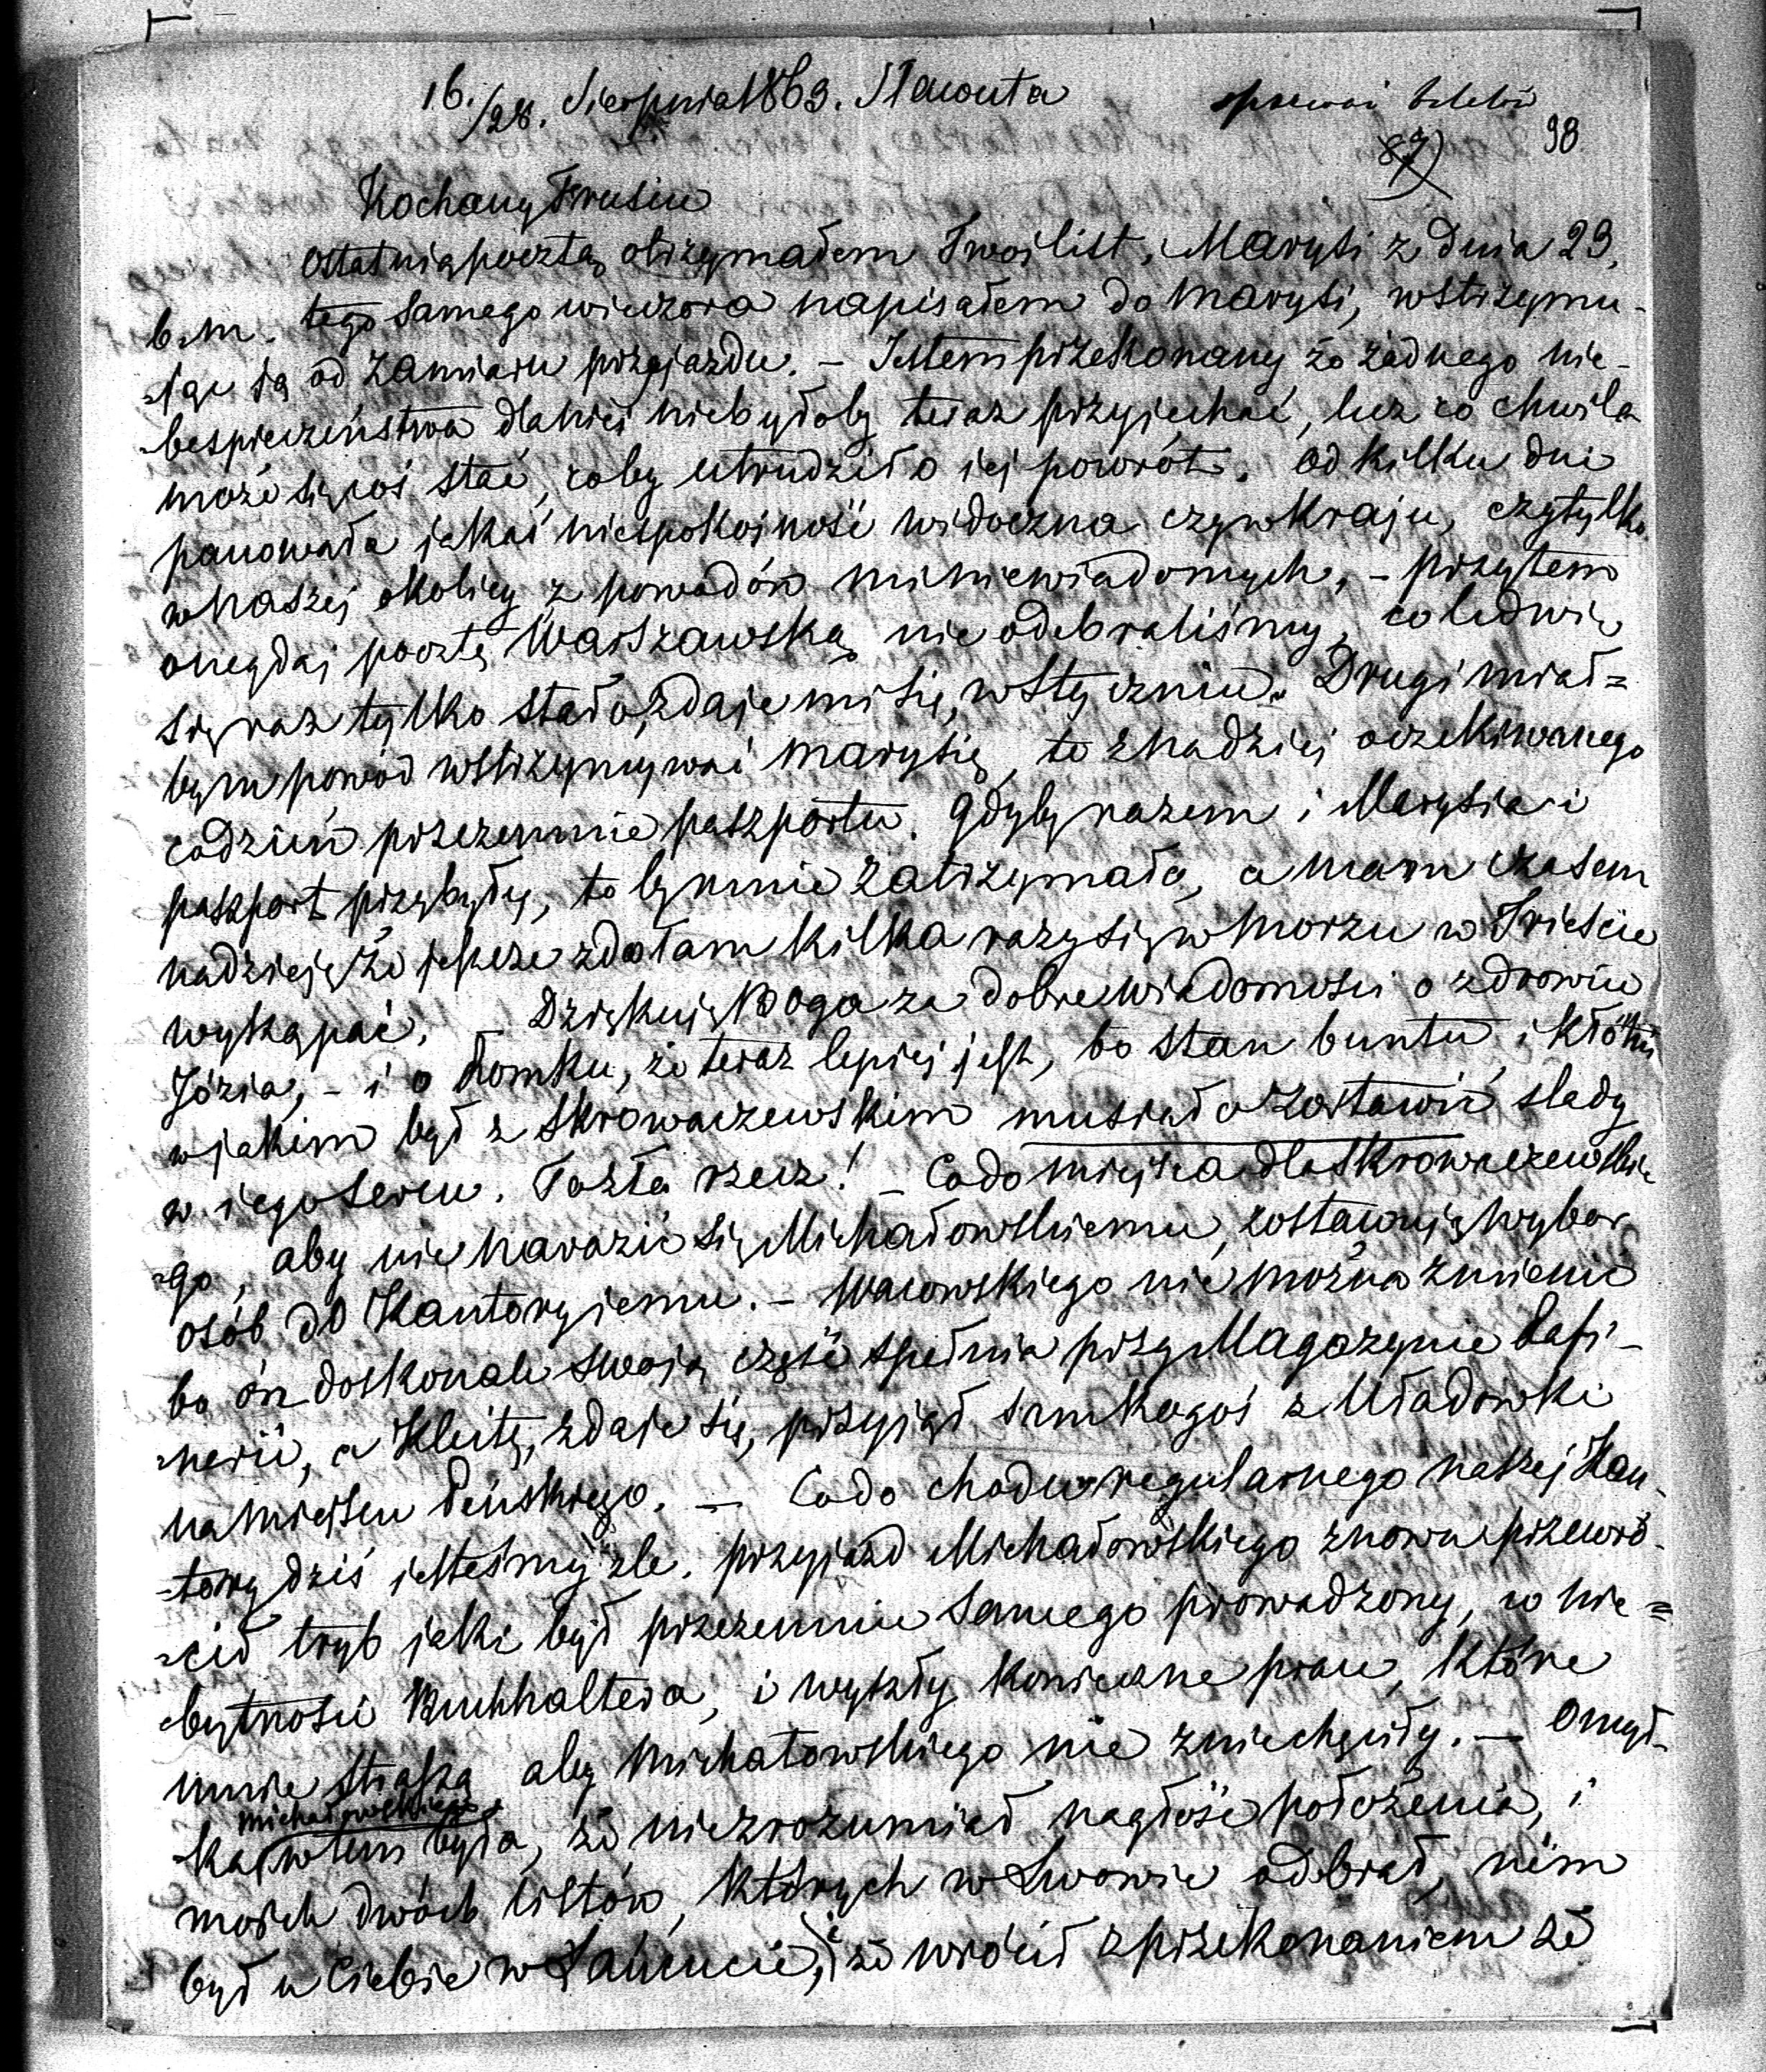 16./28. Sierpnia 1863. Sławuta
98
87)
Kochany Frusiu
Ostatnią pocztą otrzymałem Twój list, i Marysi z dnia 23.
b. m. tego samego wieczora napisałem do Marysi, wstrzymu-
-jąc ją od zamiaru przyjazdu. – Jestem przekonany że żadnego nie-
-bespieczeństwa dla niej niebyłoby teraz przyjechać, lecz co chwila
może się coś stać, coby utrudziło jej powrót. Od kilku dni
panowała jakaś niespokojność widoczna czy w kraju, czy tylko
w naszej okolicy z powodów mi niewiadomych, – przytem
onegdaj pocztę Warszawską nie odebraliśmy, co ledwie
się raz tylko stało, zdaje mi się, w styczniu. Drugi miał=
bym powód wstrzymywać Marysię, to z nadziej oczekiwanego
codzień przezemnie paszportu. Gdyby razem i Marysia i
paszport przybyły, to by mnie zatrzymało, a mam czasem
nadzieję że jeszcze zdołam kilka razy się w morzu w Trieście
wykąpać. – Dziękuję Bogu za dobre wiadomości o zdrowiu
Józia, – i o Romku, że teraz lepiej jest, bo stan buntu i kłótni
w jakim był z Skrowaczewskim musiało zostawić ślady
w jego sercu. To zła rzecz! – Co do miejsca dla Skrowaczewskie
-go, aby nie narazić się Michałowskiemu, zostawuję wybór
osób do Kantory jemu. – Wacowskiego nie można zmienić
bo on doskonale swoją część spełnia przy Magazynie Rafi-
-nerii, a Kleitę, zdaje się, przyjął sam kogoś z Uładówki
na miejscu Pińskiego. – Co do chodu regularnego naszej Kan-
-tory dziś jesteśmy źle. Przyjazd Michałowskiego znowu przewró-
-cił tryb jaki był przezemnie samego prowadzony, w nie=
-bytności Buchhaltera, i wyszły konieczne prace, które
mnie straszą aby Michałowskiego nie zniechęciły. – Omył-
-ka Michałowskiego w tem była, że nie zrozumiał nagłość położenia, i
moich dwóch listów, których w Lwowie odebrał, nim
był u Ciebie w Łańcucie, i że wrócił z przekonaniem że